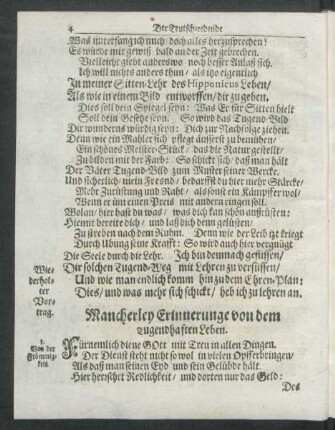 4 Der Teutschredende
Was unterfang ich mich doch alles herzusprechen!
Es würde mir gewiß bald an der Zeit gebrechen.
Vielleicht giebt anderswo noch besser Anlaß sich.
Ich will nichts anders thun / als itzo eigentlich
In meiner Sitten-Lehr des Hipponicus Leben /
Als wie in einem Bild entworffen / dir zu geben.
Dies soll dein Spiegel seyn: Was Er für Sitten hielt
Soll dein Gesetze seyn. So wird das Tugend-Bild
Dir wunderns würdig seyn: Dich zur Nachfolge ziehen.
Denn wie ein Mahler sich pflegt äusserst zu bemühen /
Ein schönes Meister-Stück / das die Natur gestellt /
Zu bilden mit der Farb: So schickt sich / daß man hält
Der Väter Tugend-Bild zum Muster seiner Wercke.
Und sicherlich / mein Freund / bedarffst du hier mehr Stärcke /
Mehr Zurüstung und Raht / als sonst ein Kämpffer wol /
Wenn er um einen Preis mit andern ringen soll.
Wolan / hier hast du was / was dich kan schön ausrüsten:
Hiemit bereite dich / und laß dich denn gelüsten /
Zu streben nach dem Ruhm. Denn wie der Leib itzt kriegt
Durch Ubung seine Krafft: So wird auch hier vergnügt
Die Seele durch die Lehr. Ich bin demnach geflissen /
Wiederholter Vortrag.
Dir solchen Tugend-Weg mit Lehren zu versüssen /
Und wie man endlich komm hin zu dem Ehren-Plan:
Dies / und was mehr sich schickt / heb ich zu lehren an.
Mancherley Erinnerunge von dem
tugendhaften Leben.
1. Von der Frömmigkeit.
Fürnemlich diene GOtt mit Treu in allen Dingen.
Der Dienst steht nicht so wol in vielen Opfferbringen /
Als daß man seinen Eyd und sein Gelübde hält.
Hier herrschet Redlichkeit / und dorten nur das Geld:
Des